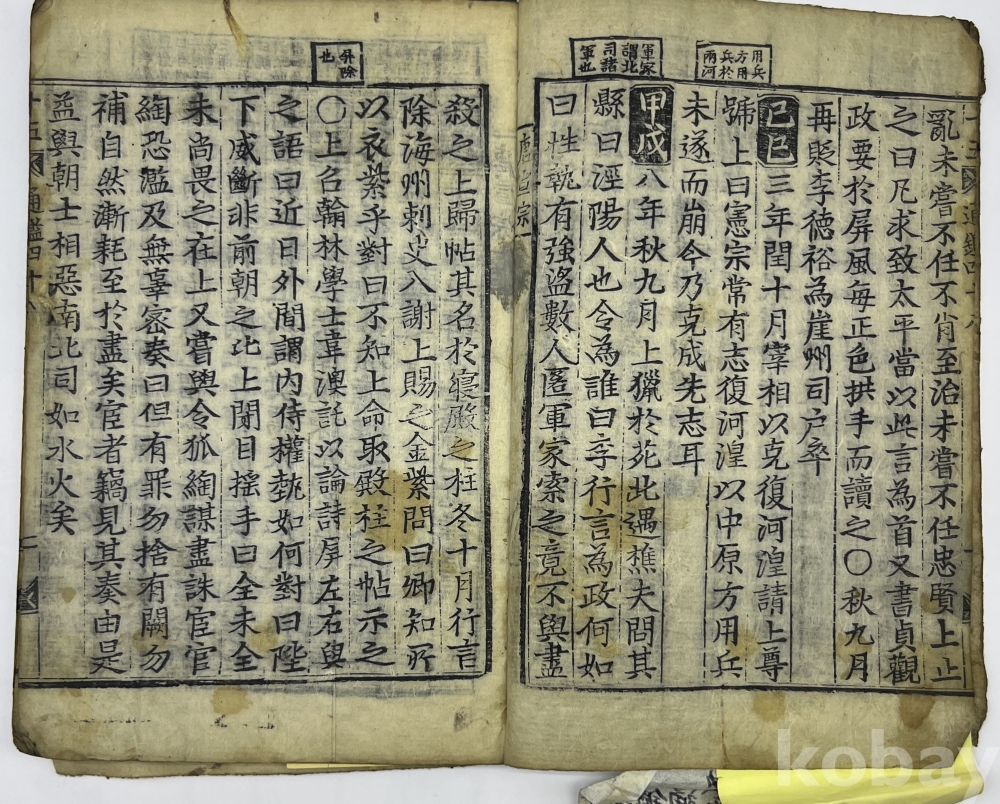 十五 通鑑四十八
用兵
方用
兵於
兩河
亂未嘗不任不肖至治未嘗不任忠賢上止
之曰凡求致太平當以此言為首又書貞觀
政要於屏風每正色拱手而讀之〇秋九月
再貶李德裕為崖州司户卒
己巳三年閏十月宰相以克復河湟請上尊
號上曰憲宗常有志復河湟以中原方用兵
未遂而崩今乃克成先志耳
軍家
謂北
司諸
軍也
甲戌八年秋九月上獵於苑北遇樵夫問其
縣曰涇陽人也令為誰曰李行言為政何如
曰性執有強盗數人匿軍家索之竟不與盡
唐宣宗
殺之上歸帖其名於寢殿之柱冬十月行言
除海州刺史入謝上賜之金紫問曰卿知所
以衣紫乎對曰不知上命取殿柱之帖示之
屏除
也
〇上召翰林學士韋澳託以論詩屏左右與
之語曰近日外間謂内侍權埶如何對曰陛
下威斷非前朝之比上閉目搖手曰全未全
未尚畏之在上又嘗與令狐綯謀盡誅宦官
綯恐濫及無辜密奏曰但有罪勿捨有闕勿
補自然漸耗至於盡矣宦者竊見其奏由是
益與朝士相惡南北司如水火矣
十五 通鑑四十八
kobay